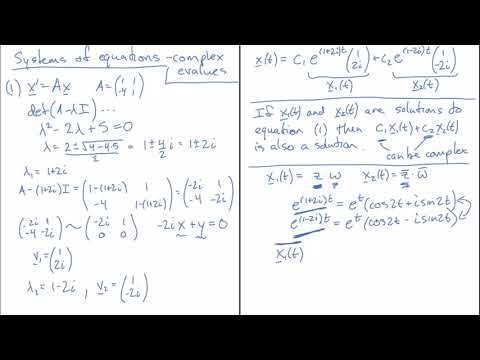 Systems of equations - complex
evalues
(1) x' = Ax  A = (1 1; -4 1)
det(A-λI) ...
λ² - 2λ + 5 = 0
λ = (2 ± √(4-4·5))/2 = 1 ± 4/2 i = 1 ± 2i
λ₁ = 1+2i
A-(1+2i)I = (1-(1+2i) 1; -4 1-(1+2i)) = (-2i 1; -4 -2i)
(-2i 1; -4 -2i) ~ (-2i 1; 0 0)  -2ix + y = 0
v₁ = (1; 2i)
λ₂ = 1-2i , v₂ = (1; -2i)
x(t) = C₁ e^((1+2i)t) (1; 2i) + C₂ e^((1-2i)t) (1; -2i)
x₁(t)  x₂(t)
If x₁(t) and x₂(t) are solutions to
equation (1) then C₁x₁(t) + C₂x₂(t)
is also a solution.
can be complex
x₁(t) = z w  x₂(t) = z̄ · w̄
e^((1+2i)t) = e^t (cos2t + i sin2t)
e^((1-2i)t) = e^t (cos2t - i sin2t)
x₁(t)